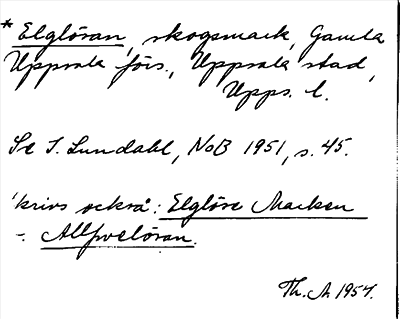 * Elglöran, skogsmark, Gamla
Uppsala förs., Uppsala stad,
Upps. l.
Se I. Lundahl, NoB 1951, s. 45.
skrivs också: Elglöre Marken
-. Allfvelöran.
Th. A 1954.